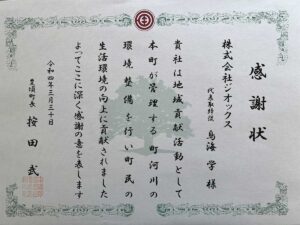 感謝状
株式会社ジオックス
代表取締役 鳥海 学 様
貴社は地域貢献活動として
本町が管理する町河川の
環境整備を行い町民の
生活環境の向上に貢献されました
よってここに深く感謝の意を表します
令和四年三月三十日
豊頃町長 按田 武